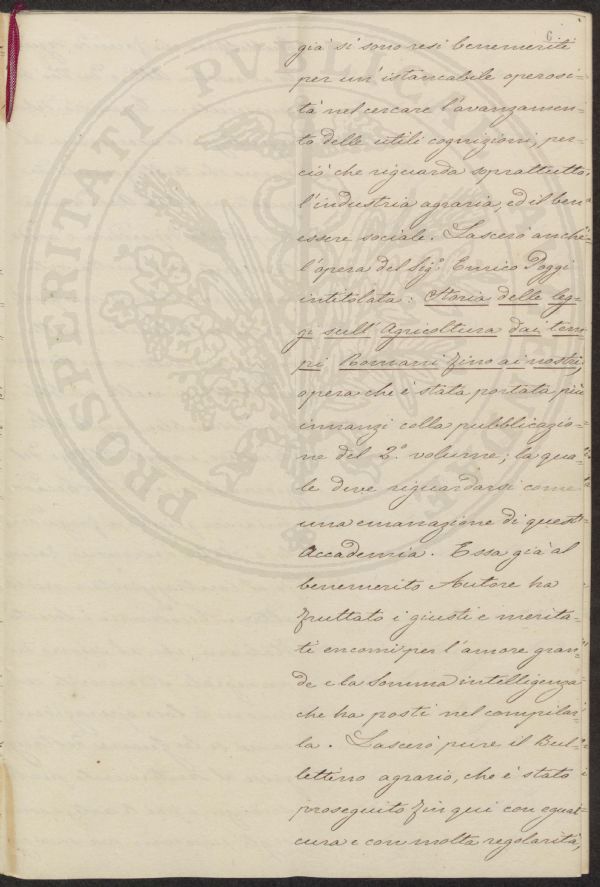 6.
già si sono resi benemeriti
per un' istancabile operosi=
tà nel cercare l'avanzamen=
to delle utili cognizioni, per
ciò che riguarda soprattutto
l'industria agraria, ed il ben
essere sociale. Lascerò anche
l'opera del Sigr. Enrico Poggi
intitolata: Storia delle leg=
gi sull' Agricoltura dai tem
pi Romani fino ai nostri,
opera che è stata portata più
innanzi colla pubblicazio=
ne del 2.° volume; la qua=
le deve riguardarsi come
una emanazione di quest'
Accademia. Essa già al
benemerito Autore ha
fruttato i giusti e merita=
ti encomi per l'amore gran=
de e la somma intelligenza
che ha posti nel compilar
la. Lascerò pure il Bul=
lettino agrario, che è stato
proseguito fin qui con egual
cura e con molta regolarità,
PROSPERITATI PVBLICAE